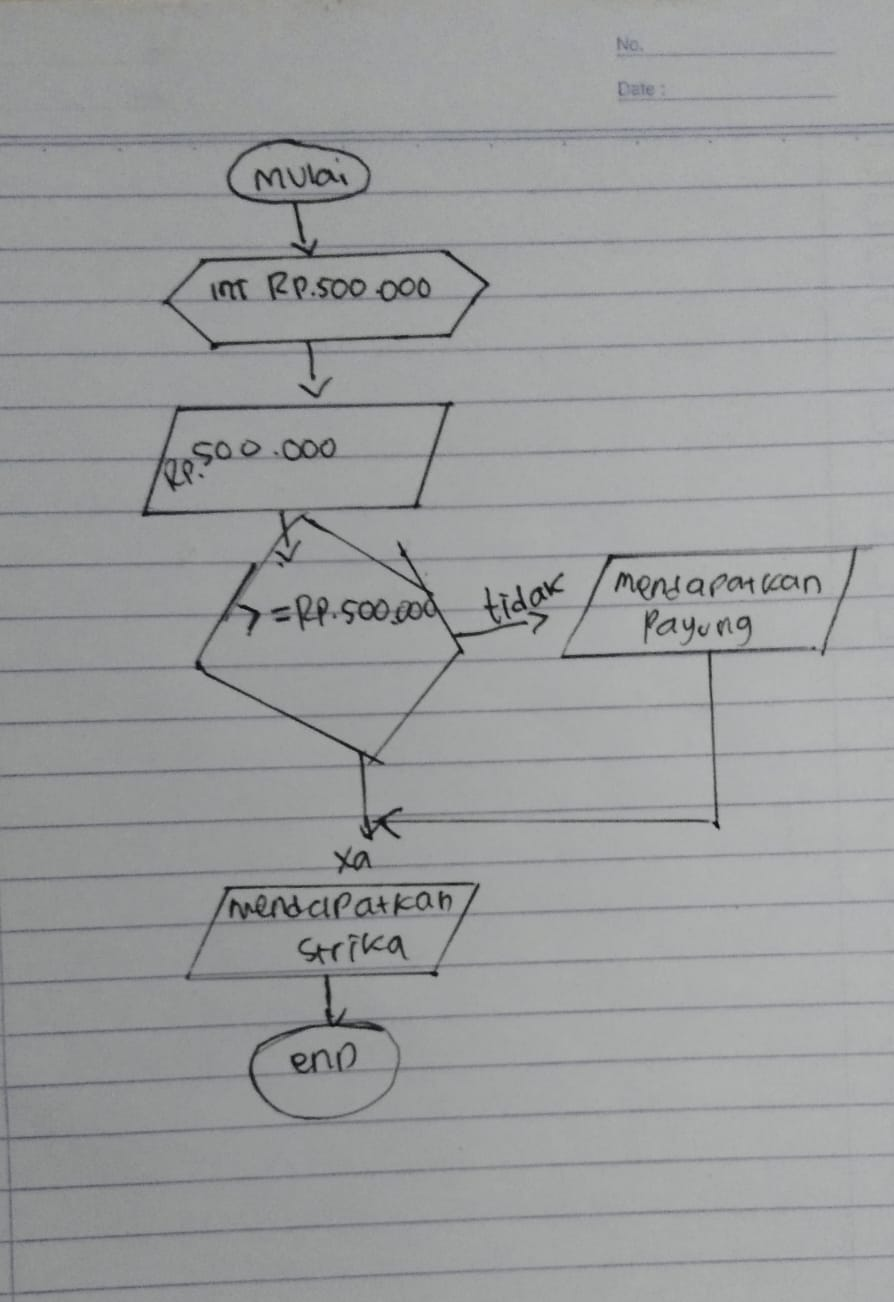 No.
Date :
Mulai
int Rp.500.000
Rp.500.000
>=Rp.500.000
tidak
mendapatkan
Payung
Ya
mendapatkan
Strika
end